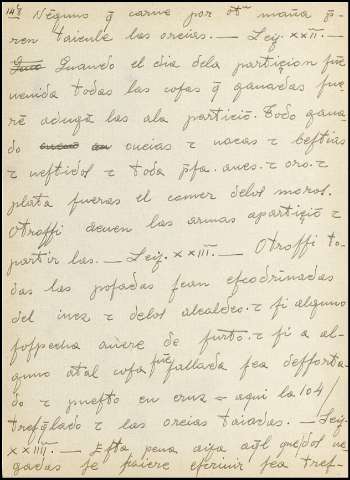 147 Nēguno q̄ carne por otr̄ maña p̄-
ren taienle las oreias. — Ley. xxii. —
Quando el dia dela particion fue
uenida todas las cosas q̄ ganadas fue
rē adugā las ala particiō. Todo gana
do oueias τ uacas τ bestias
τ uestidos τ toda p̄sa. aues. τ oro. τ
plata fueras el comer delos moros.
Otrossi deuen las armas aparticiō τ
partir las. — Ley. xxiii. — Otrossi to-
das las posadas sean escodrinadas
del iuez τ delos alcaldes. τ si alguno
sospecha ouiere de furto. τ si a al-
guno atal cosa fue fallada sea desforta
do τ puesto en cruz = aqui la 104/
tresq̄lado τ las oreias taiadas. — Ley.
xxiiii. — Esta pena aya aq̄l que dos ue-
gadas se faiere escriuir sea tres-